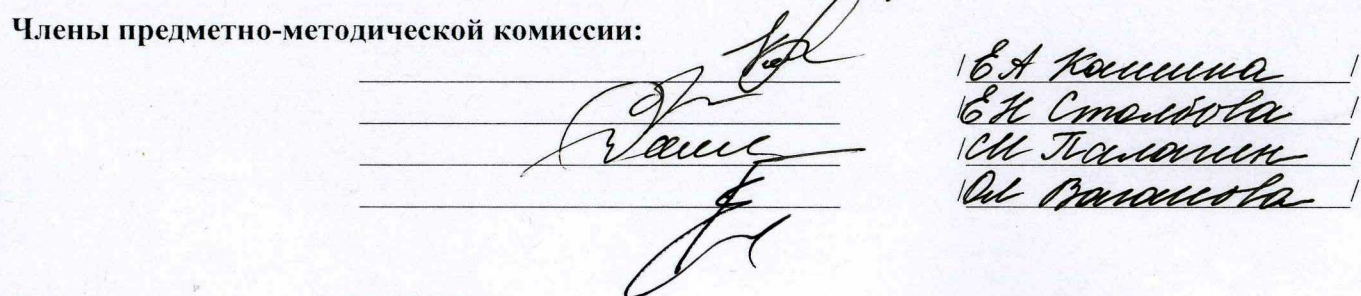 Члены предметно-методической комиссии:
/ ЕА Камина /
/ ЕН Столбова /
/ СИ Палагин /
/ ОЛ Ваганова /